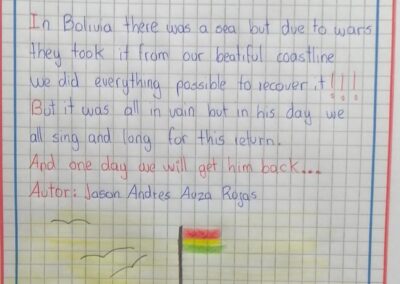 In Bolivia there was a sea but due to wars
they took it from our beatiful coastline
we did everything possible to recover it!!!
But it was all in vain but in his day we
all sing and long for this return.
And one day we will get him back...
Autor: Jason Andres Auza Rojas